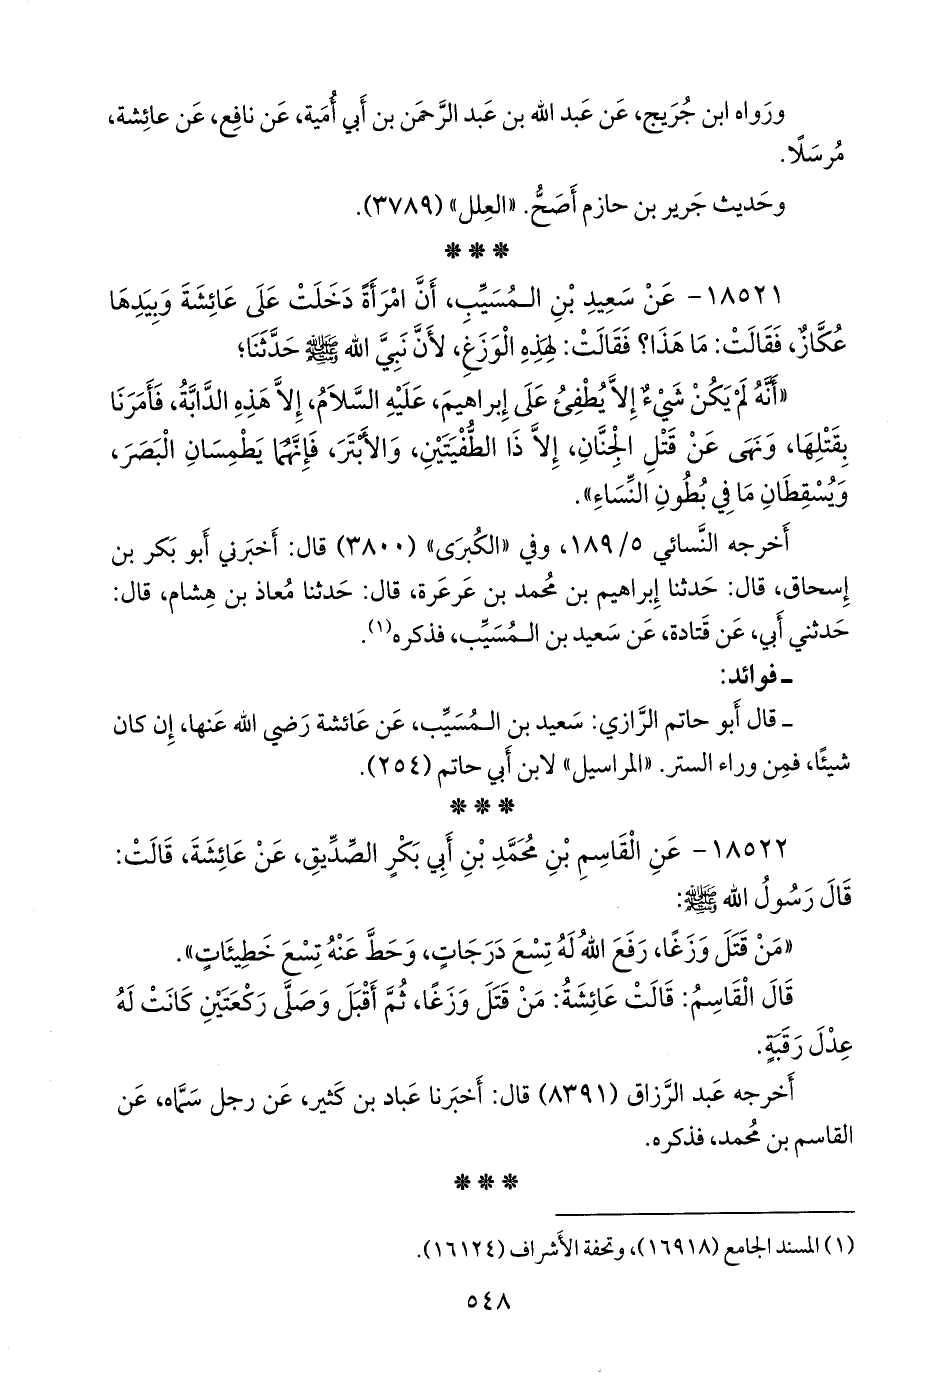 ورَواه ابن جُرَيج، عَن عَبد الله بن عَبد الرَّحمَن بن أَبي أُمَية، عَن نافِع، عَن عائِشة،
مُرسَلًا.
وحَديث جَرير بن حازم أَصَحُّ. «العِلل» (٣٧٨٩).
* * *
١٨٥٢١- عَنْ سَعِيدِ بْنِ الـمُسَيِّبِ، أَنَّ امْرَأَةً دَخَلَتْ عَلَى عَائِشَةَ وَبِيَدِهَا
عُكَّازٌ، فَقَالَتْ: مَا هَذَا؟ فَقَالَتْ: لِهَذِهِ الْوَزَغِ، لأَنَّ نَبِيَّ الله ﷺ حَدَّثَنَا؛
«أَنَّهُ لَمْ يَكُنْ شَيْءٌ إِلاَّ يُطْفِئُ عَلَى إِبراهِيمَ، عَلَيْهِ السَّلاَمُ، إِلاَّ هَذِهِ الدَّابَّةُ، فَأَمَرَنَا
بِقَتْلِهَا، وَنَهَى عَنْ قَتْلِ الْجِنَّانِ، إِلاَّ ذَا الطُّفْيَتَيْنِ، وَالأَبْتَرَ، فَإِنَّهُمَا يَطْمِسَانِ الْبَصَرَ،
وَيُسْقِطَانِ مَا فِي بُطُونِ النِّسَاءِ».
أَخرجه النَّسائي ٥/ ١٨٩، وفي «الكُبرَى» (٣٨٠٠) قال: أَخبَرني أَبو بَكر بن
إِسحاق، قال: حَدثنا إِبراهيم بن مُحمد بن عَرعَرة، قال: حَدثنا مُعاذ بن هِشام، قال:
حَدثني أَبي، عَن قَتادة، عَن سَعيد بن الـمُسَيِّب، فذكره(١).
ـ فوائد:
ـ قال أَبو حاتم الرَّازي: سَعيد بن الـمُسَيِّب، عَن عَائشة رَضي الله عَنها، إِن كان
شيئًا، فمِن وراء الستر. «المراسيل» لابن أَبي حاتم (٢٥٤).
* * *
١٨٥٢٢- عَنِ الْقَاسِمِ بْنِ مُحَمَّدِ بْنِ أَبِي بَكْرٍ الصِّدِّيقِ، عَنْ عَائِشَةَ، قَالَتْ:
قَالَ رَسُولُ الله ﷺ:
«مَنْ قَتَلَ وَزَغًا، رَفَعَ اللهُ لَهُ تِسْعَ دَرَجَاتٍ، وَحَطَّ عَنْهُ تِسْعَ خَطِيئَاتٍ».
قَالَ الْقَاسِمُ: قَالَتْ عَائِشَةُ: مَنْ قَتَلَ وَزَغًا، ثُمَّ أَقْبَلَ وَصَلَّى رَكْعَتَيْنِ كَانَتْ لَهُ
عِدْلَ رَقَبَةٍ.
أَخرجه عَبد الرَّزاق (٨٣٩١) قال: أَخبَرنا عَباد بن كَثير، عَن رجل سَمَّاه، عَن
القاسم بن مُحمد، فذكره.
* * *
(١) المسند الجامع (١٦٩١٨)، وتحفة الأَشراف (١٦١٢٤).
٥٤٨